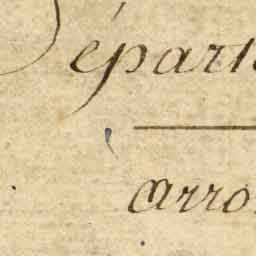 Départ
arro